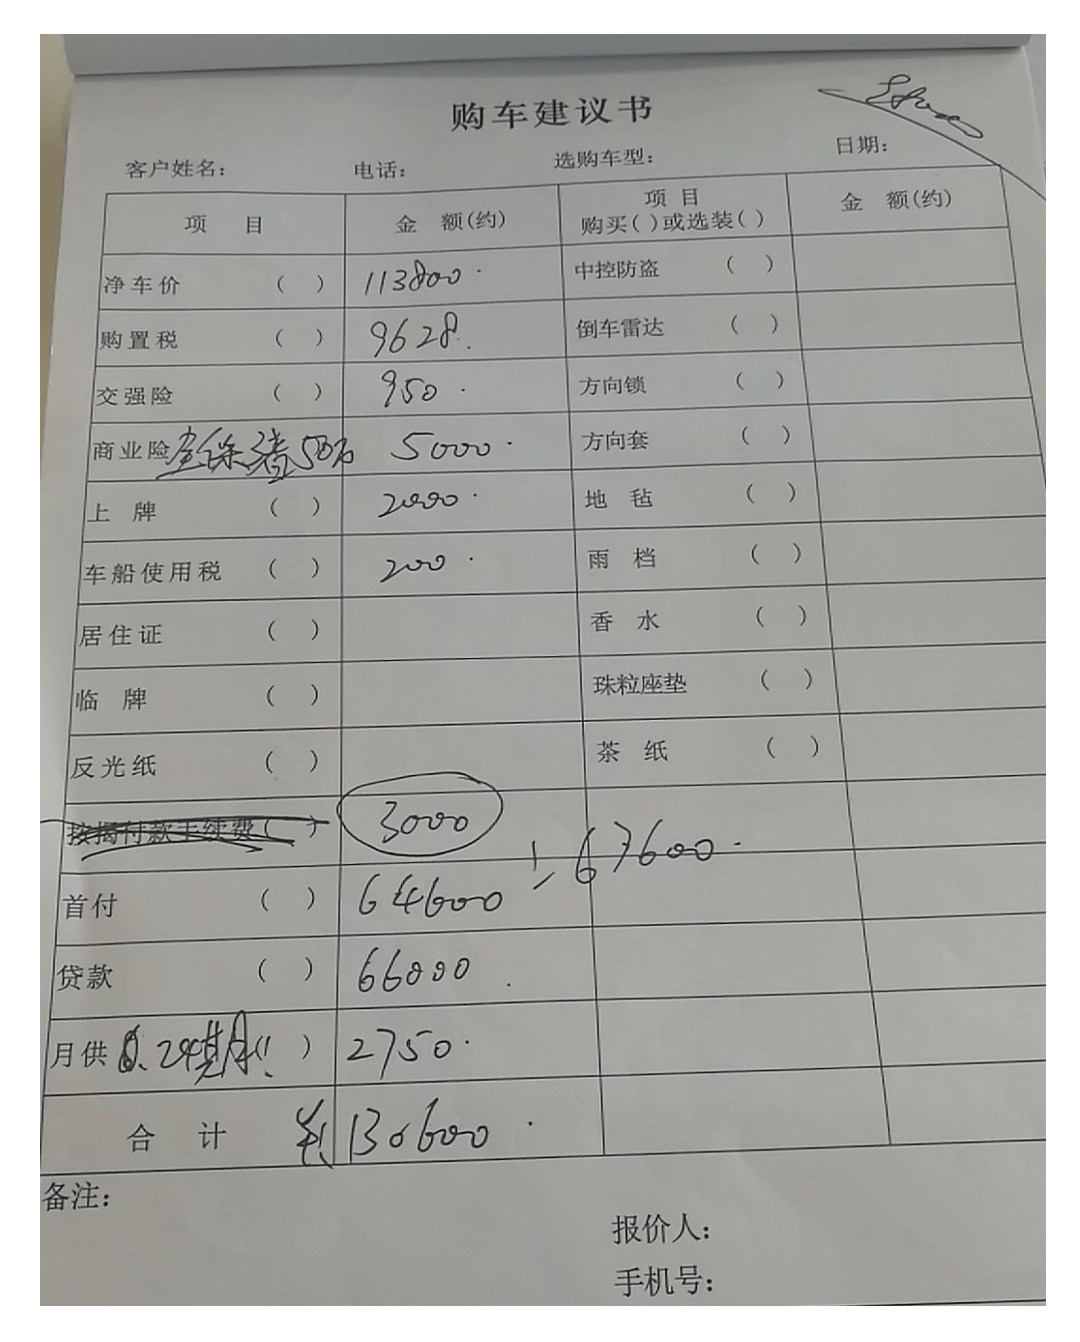 购车建议书
客户姓名： 电话： 选购车型： 日期：
项 目 金 额(约) 项 目 购买( )或选装( ) 金 额(约)
净车价 ( ) 113800. 中控防盗 ( )
购置税 ( ) 9628. 倒车雷达 ( )
交强险 ( ) 950. 方向锁 ( )
商业险 全保 50% 5000. 方向套 ( )
上 牌 ( ) 2000. 地 毡 ( )
车船使用税 ( ) 200. 雨 档 ( )
居住证 ( ) 香 水 ( )
临 牌 ( ) 珠粒座垫 ( )
反光纸 ( ) 茶 纸 ( )
按揭付款手续费( ) 3000
67600.
首付 ( ) 64600
贷款 ( ) 66000.
月供 24期 ) 2750.
合 计 130600.
备注：
报价人：
手机号：